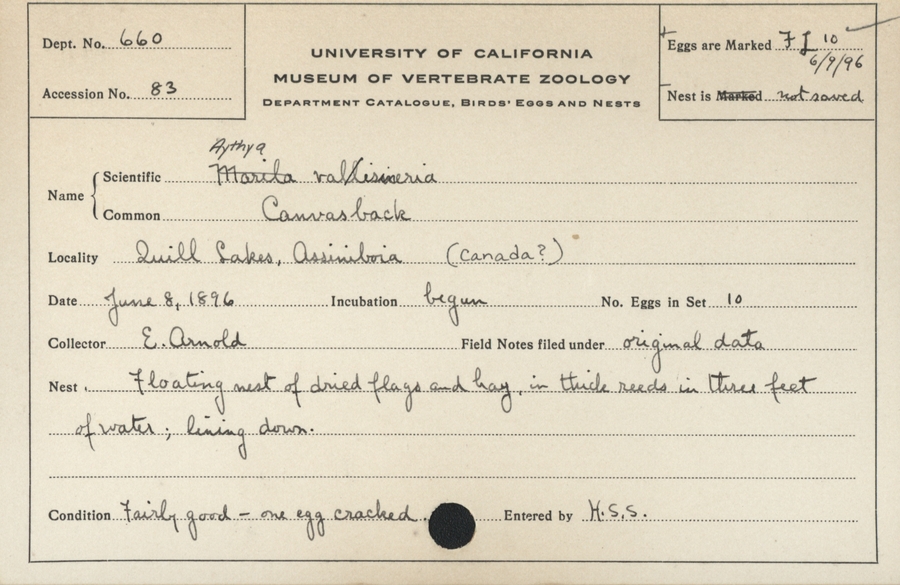 Dept. No. 660
Accession No. 83
UNIVERSITY OF CALIFORNIA
MUSEUM OF VERTEBRATE ZOOLOGY
DEPARTMENT CATALOGUE, BIRDS' EGGS AND NESTS
Eggs are Marked 10
6/9/96
Nest is Marked not saved
Aythya
Name Scientific Marila vallisineria
Common Canvasback
Locality Quill Lakes, Assiniboia (Canada?)
Date June 8, 1896 Incubation begun No. Eggs in Set 10
Collector E. Arnold Field Notes filed under original data
Nest Floating nest of dried flags and hay, in thick reeds in three feet
of water; lining down.
Condition Fairly good - one egg cracked. Entered by H.S.S.